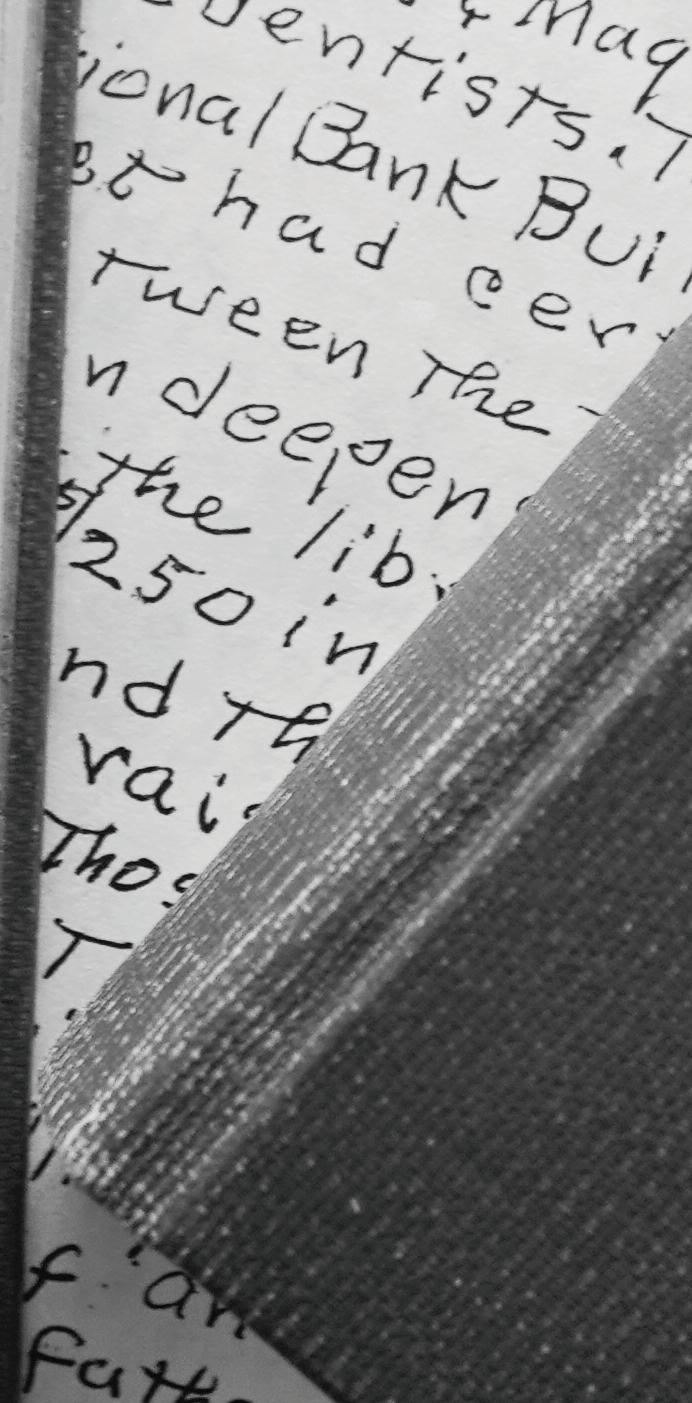 & Mag
Dentists. T
ional Bank Buil
et had cer
tween the
n deepen
the lib
250 in
nd Th
rai
Thos
T
f an
Fath